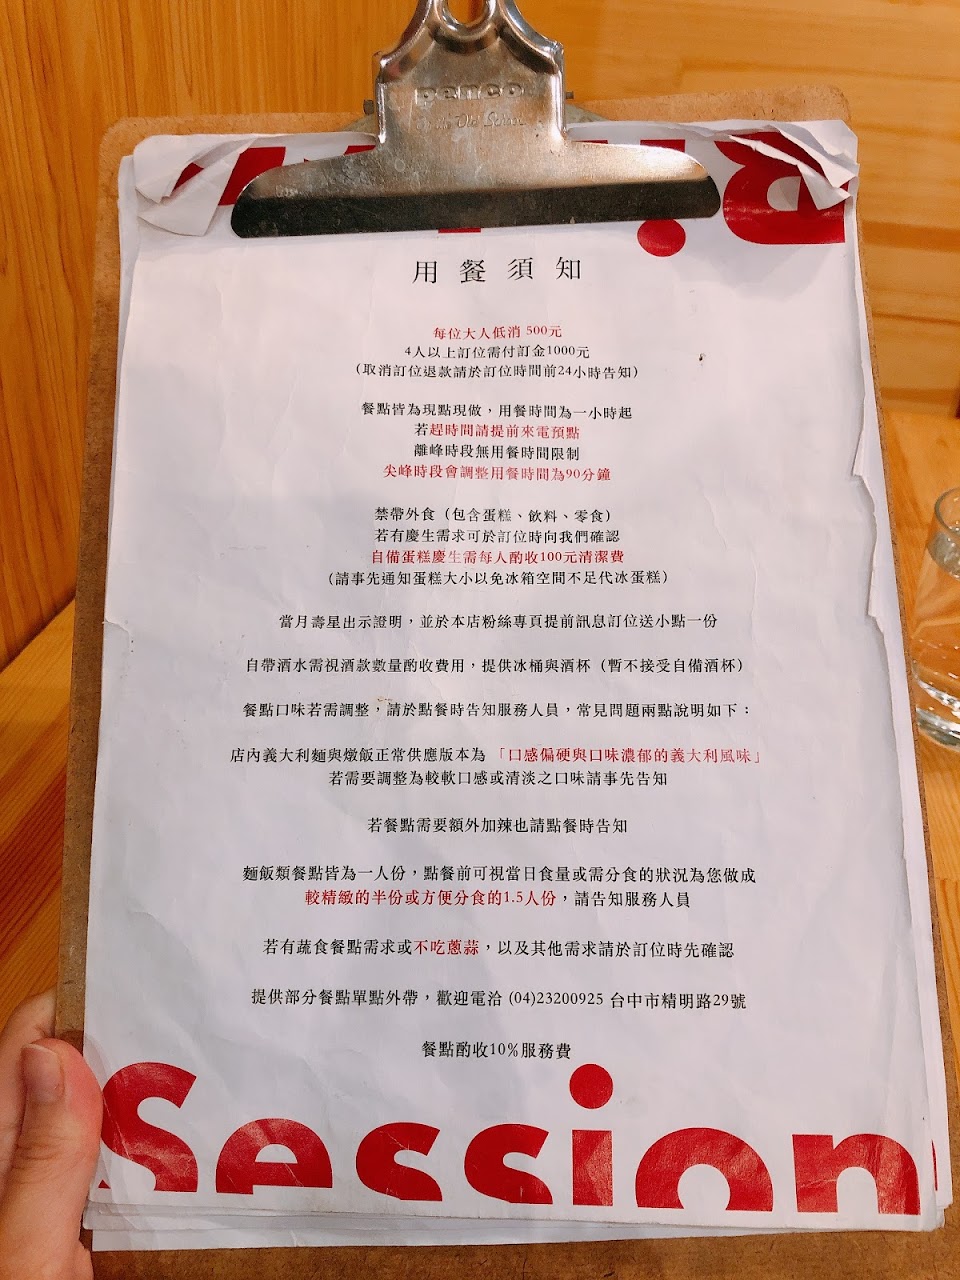 penco
用餐須知
每位大人低消 500元
4人以上訂位需付訂金1000元
(取消訂位退款請於訂位時間前24小時告知)
餐點皆為現點現做，用餐時間為一小時起
若趕時間請提前來電預點
離峰時段無用餐時間限制
尖峰時段會調整用餐時間為90分鐘
禁帶外食（包含蛋糕、飲料、零食）
若有慶生需求可於訂位時向我們確認
自備蛋糕慶生需每人酌收100元清潔費
(請事先通知蛋糕大小以免冰箱空間不足代冰蛋糕)
當月壽星出示證明，並於本店粉絲專頁提前訊息訂位送小點一份
自帶酒水需視酒款數量酌收費用，提供冰桶與酒杯（暫不接受自備酒杯）
餐點口味若需調整，請於點餐時告知服務人員，常見問題兩點說明如下：
店內義大利麵與燉飯正常供應版本為「口感偏硬與口味濃郁的義大利風味」
若需要調整為較軟口感或清淡之口味請事先告知
若餐點需要額外加辣也請點餐時告知
麵飯類餐點皆為一人份，點餐前可視當日食量或需分食的狀況為您做成
較精緻的半份或方便分食的1.5人份，請告知服務人員
若有蔬食餐點需求或不吃蔥蒜，以及其他需求請於訂位時先確認
提供部分餐點單點外帶，歡迎電洽 (04)23200925 台中市精明路29號
餐點酌收10%服務費
Session